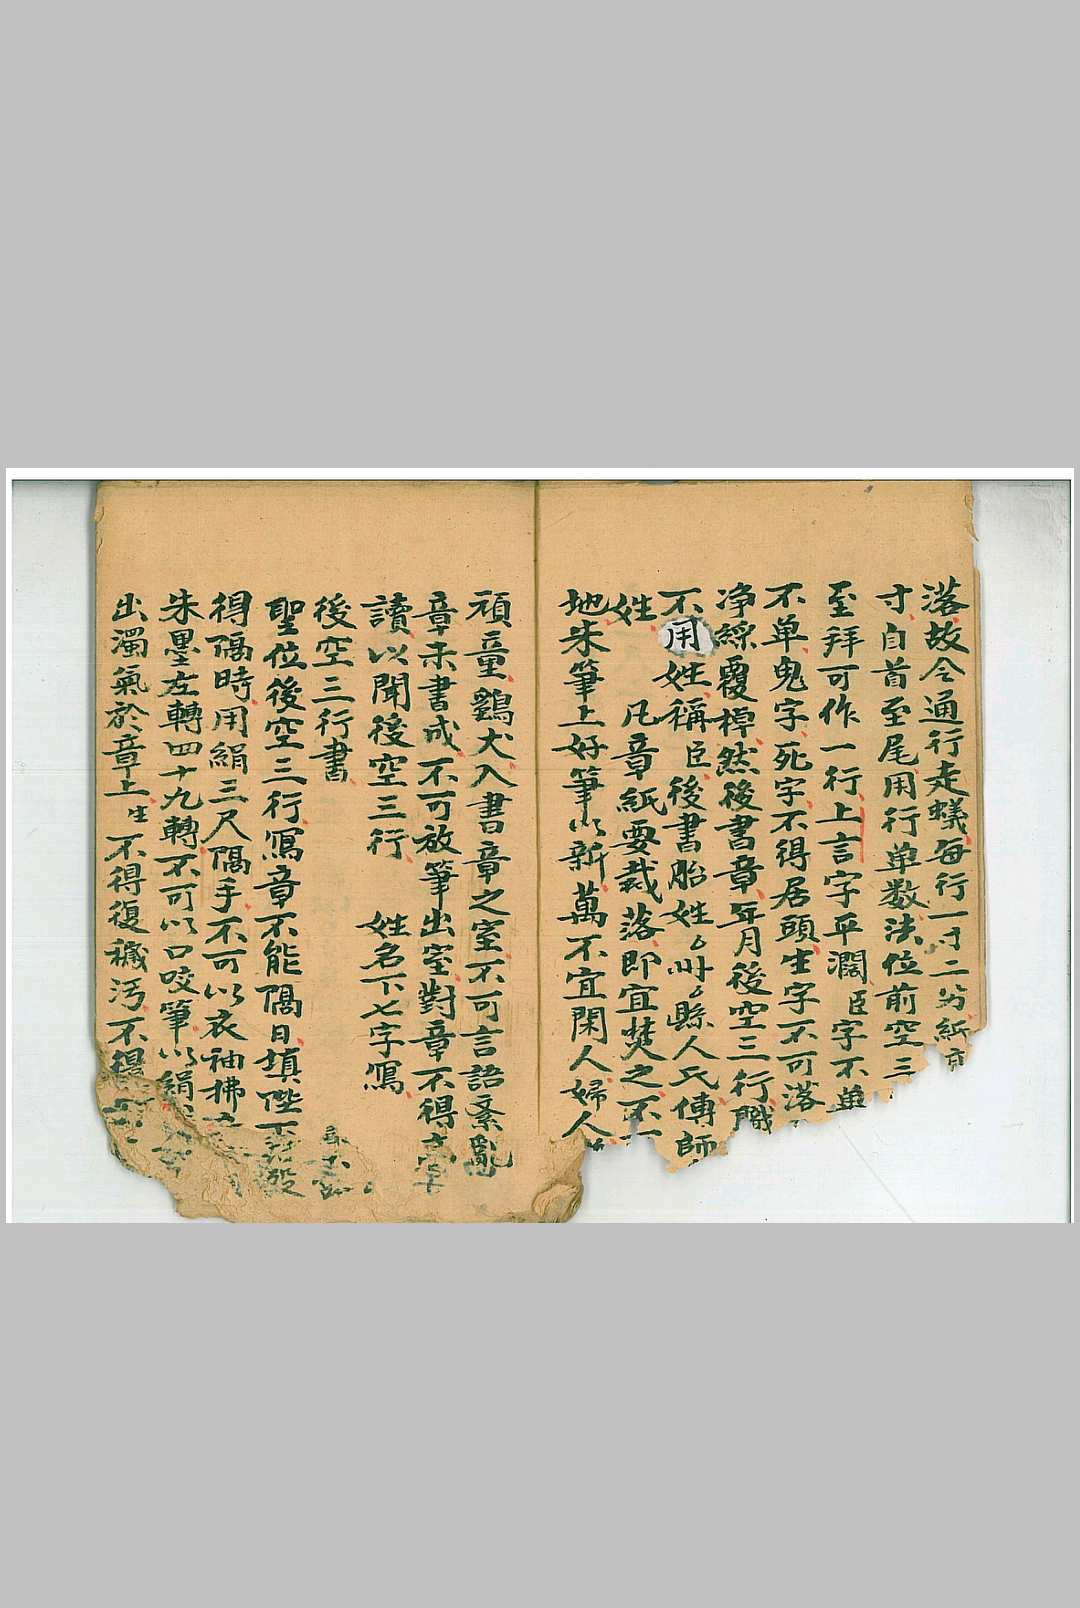 落故令通行走蟻每行一寸二分紙
寸自首至尾用行单数法位前空三
至拜可作一行上言字平濶臣字不单
不单鬼字死字不得居頭生字不可落
净綵覆棹然後書章年月後空三行職
不用姓稱臣後書胎姓。州。縣人氏傳師
姓 凡章紙要裁落即宜焚之不
地朱筆上好筆以新萬不宜閑人婦人
頑童鷄犬入書章之室不可言語紊亂
章未書成不可放筆出室對章不得
讀以聞後空三行 姓名下七字寫
後空三行書
聖位後空三行寫章不能隔日填陛下
得隔時用絹三尺隔手不可以衣袖拂
朱墨左轉四十九轉不可以口咬筆以絹
出濁氣於章上生不得復穢汚不得